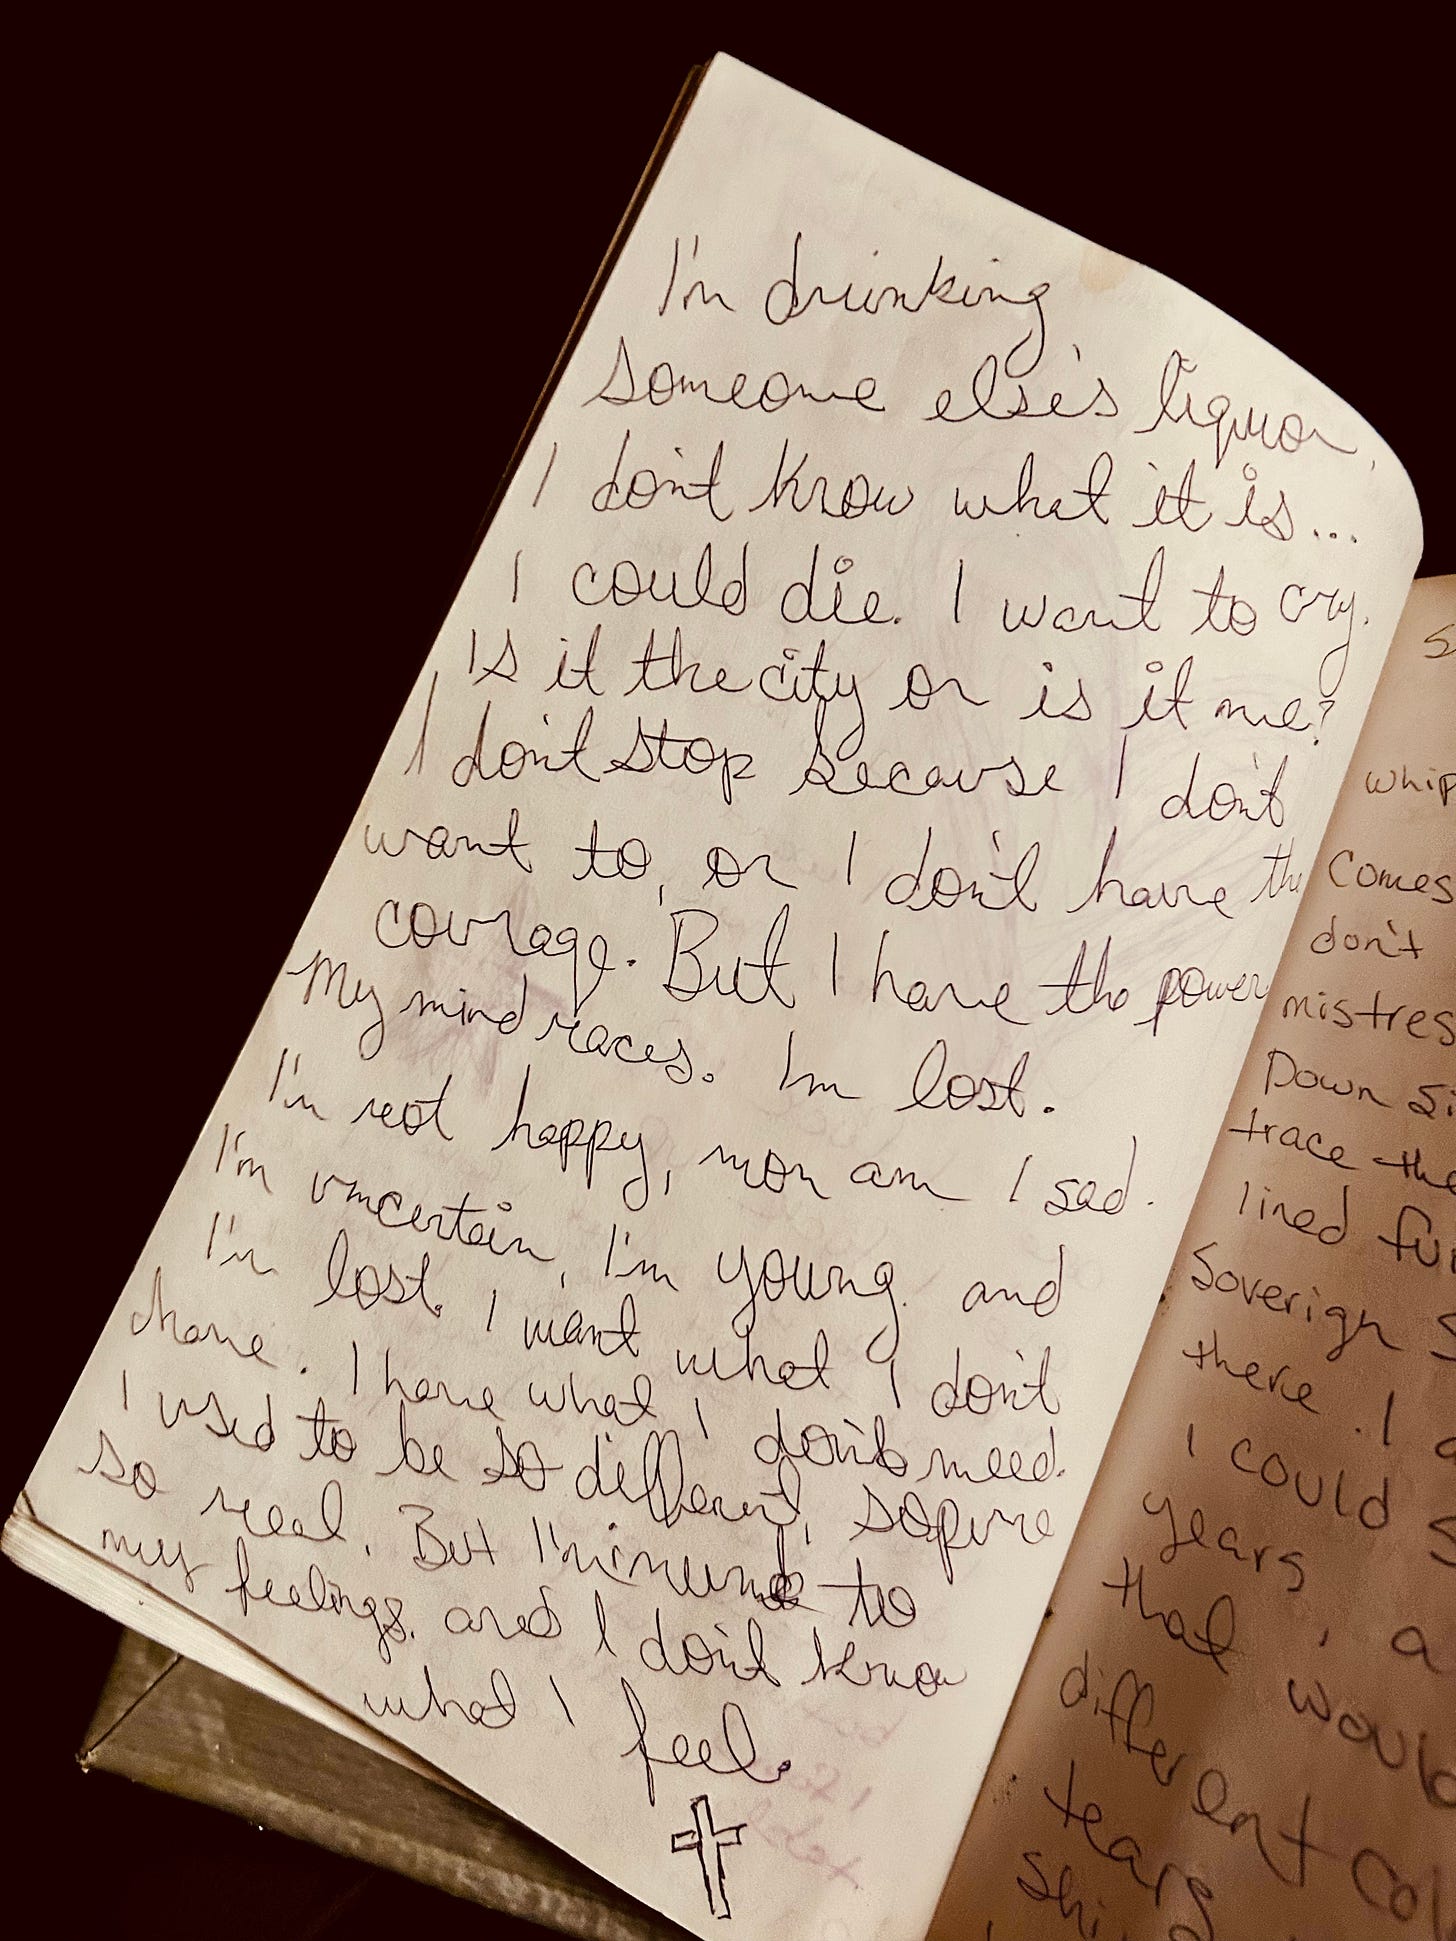 I'm drinking
someone else's liquor,
I don't know what it is...
I could die. I want to cry.
Is it the city or is it me?
I don't stop because I don't
want to, or I don't have the
courage. But I have the power
My mind races. I'm lost.
I'm not happy, nor am I sad.
I'm uncertain, I'm young and
I'm lost. I want what I don't
have. I have what I don't need.
I used to be so different, so pure
so real. But I'm inmune to
my feelings. and I don't know
what I feel.
S
whip
comes
don't
mistres
Down Si
trace the
lined fu
Soverign S
there. I a
I could S
years, a
that would
different col
tears
Shi